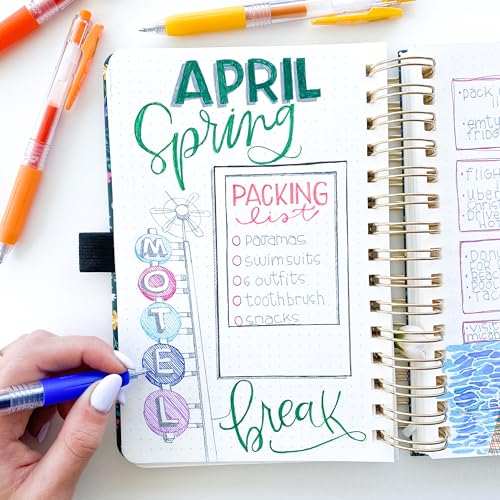 APRIL
Spring
PACKING
list
pajamas
swimsuits
6 outfits
toothbrush
snacks
MOTEL
break
pack
emty
frid
fligh
uber
Driv
Don
For
Boo
Tac
visi